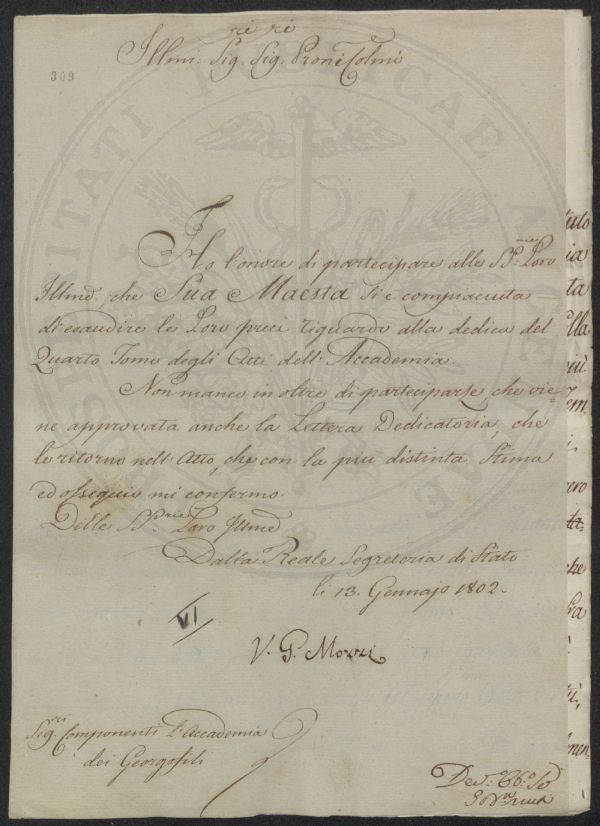 Illmi. Sig.ri Sig.ri Proni Colmi
309
Ho l'onore di partecipare alle SS.rie Loro
Illme. che Sua Maestà si è compiaciuta
di esaudire le Loro preci riguardo alla dedica del
Quarto Tomo degli Atti dell'Accademia.
Non manco in oltre di partecipargli, che vie-
ne approvata anche la Lettera Dedicatoria, che
le ritorno nell'Atto, che con la più distinta Stima
ed ossequio mi confermo.
Delle SS.rie Loro Illme
Dalla Reale Segretoria di Stato
li 13. Gennajo 1802.
VI
V. G. Mozzi
Sig.ri Componenti l'Accademia
dei Georgofili
Dev.: Obb.o Se